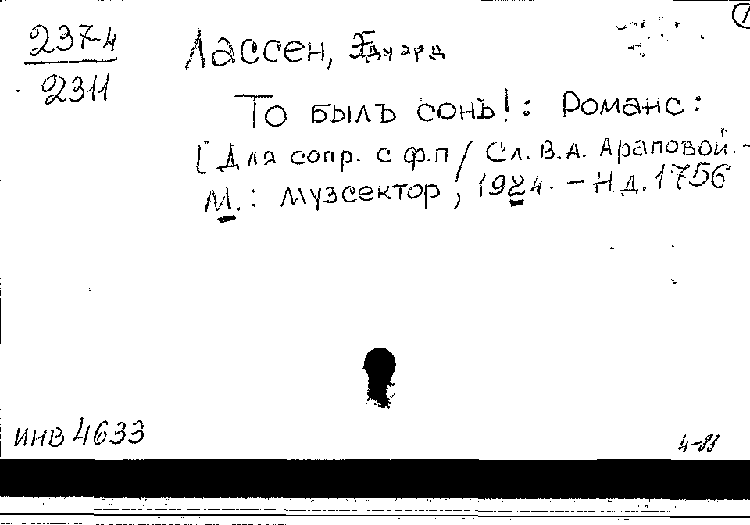 1
237-4
2311
Лассен, Эдуард
То былъ сонъ!: Романс:
[Для сопр. с ф.п / Сл. В.А. Араповой. -
М.: Музсектор, 1924. - Н д. 1756
ИНВ 4633
4-88